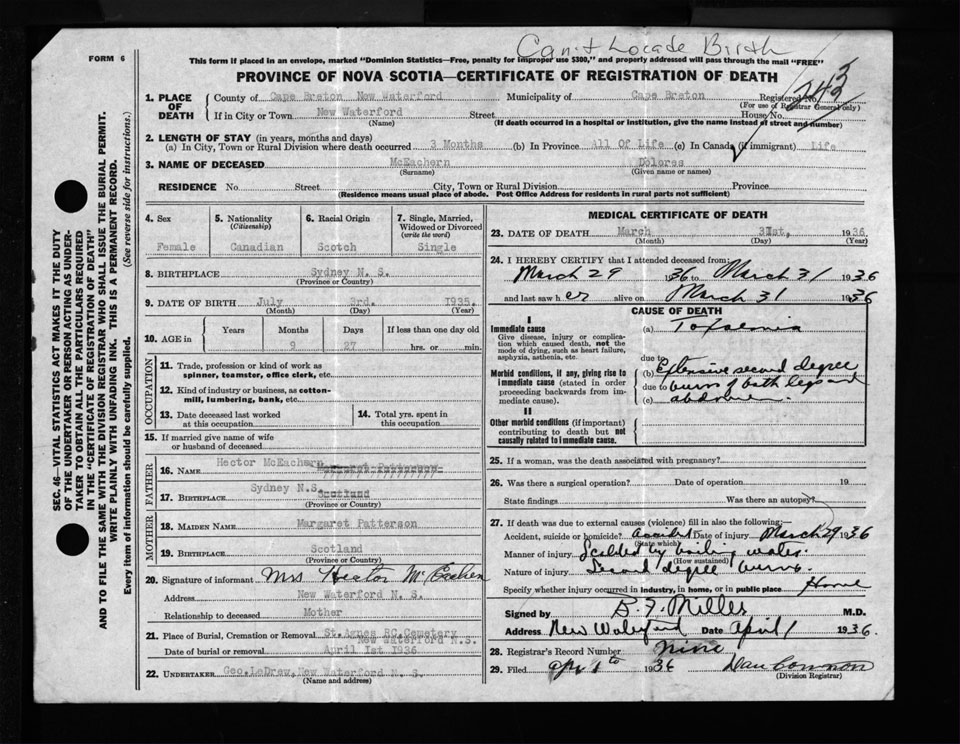 Can't Locade Birth
FORM 6
This form if placed in an envelope, marked "Dominion Statistics—Free, penalty for improper use $300," and properly addressed will pass through the mail "FREE"
PROVINCE OF NOVA SCOTIA—CERTIFICATE OF REGISTRATION OF DEATH
1. PLACE OF DEATH County of Cape Breton New Waterford Municipality of Cape Breton Registered No.
(For use of Registrar General only)
If in City or Town New Waterford Street House No.
(Name) (If death occurred in a hospital or institution, give the name instead of street and number)
2. LENGTH OF STAY (in years, months and days)
(a) In City, Town or Rural Division where death occurred 3 Months (b) In Province All Of Life (c) In Canada (if immigrant) Life
3. NAME OF DECEASED McEachern Dolores
(Surname) (Given name or names)
RESIDENCE No. Street City, Town or Rural Division Province
(Residence means usual place of abode. Post Office Address for residents in rural parts not sufficient)
SEC. 46—VITAL STATISTICS ACT MAKES IT THE DUTY
OF THE UNDERTAKER OR PERSON ACTING AS UNDER-
TAKER TO OBTAIN ALL THE PARTICULARS REQUIRED
IN THE "CERTIFICATE OF REGISTRATION OF DEATH"
AND TO FILE THE SAME WITH THE DIVISION REGISTRAR WHO SHALL ISSUE THE BURIAL PERMIT.
WRITE PLAINLY WITH UNFADING INK. THIS IS A PERMANENT RECORD.
Every item of information should be carefully supplied. (See reverse side for instructions.)
4. Sex 5. Nationality 6. Racial Origin 7. Single, Married,
(Citizenship) Widowed or Divorced
(write the word)
Female Canadian Scotch Single
8. BIRTHPLACE Sydney N. S.
(Province or Country)
9. DATE OF BIRTH July 3rd. 1935.
(Month) (Day) (Year)
10. AGE in Years Months Days If less than one day old
9 27 hrs. or min.
OCCUPATION
11. Trade, profession or kind of work as
spinner, teamster, office clerk, etc.
12. Kind of industry or business, as cotton-
mill, lumbering, bank, etc.
13. Date deceased last worked at this occupation 14. Total yrs. spent in this occupation
15. If married give name of wife
or husband of deceased
FATHER
16. NAME Hector McEachern Margaret Patterson
17. BIRTHPLACE Sydney N.S. Scotland
(Province or Country)
MOTHER
18. MAIDEN NAME Margaret Patterson
19. BIRTHPLACE Scotland
(Province or Country)
20. Signature of informant Mrs Hector McEachern
Address New Waterford N. S.
Relationship to deceased Mother
21. Place of Burial, Cremation or Removal St. Agnes RC. Cemetery
New Waterford N.S.
Date of burial or removal April 1st 1936
22. UNDERTAKER Geo. LeDrew, New Waterford N. S.
(Name and address)
MEDICAL CERTIFICATE OF DEATH
23. DATE OF DEATH March 31st, 1936
(Month) (Day) (Year)
24. I HEREBY CERTIFY that I attended deceased from:
March 29 1936 to March 31 1936
and last saw her alive on March 31 1936
CAUSE OF DEATH
I
Immediate cause (a) Toxaemia
Give disease, injury or complica-
tion which caused death, not the
mode of dying, such as heart failure,
asphyxia, asthenia, etc.
due to
Morbid conditions, if any, giving rise to (b) Extensive second degree
immediate cause (stated in order due to burn of both legs and
proceeding backwards from im- (c) abdomen.
mediate cause).
II
Other morbid conditions (if important)
contributing to death but not
causally related to immediate cause.
25. If a woman, was the death associated with pregnancy?
26. Was there a surgical operation? Date of operation 19
State findings Was there an autopsy?
27. If death was due to external causes (violence) fill in also the following:—
Accident, suicide or homicide? accident Date of injury March 29 1936
(State which)
Manner of injury Scalded by boiling water.
(How sustained)
Nature of injury Second degree burns.
Specify whether injury occurred in industry, in home, or in public place Home
Signed by B. F. Miller M.D.
Address New Waterford Date April 1 1936.
28. Registrar's Record Number nine
29. Filed 1936
(Division Registrar)